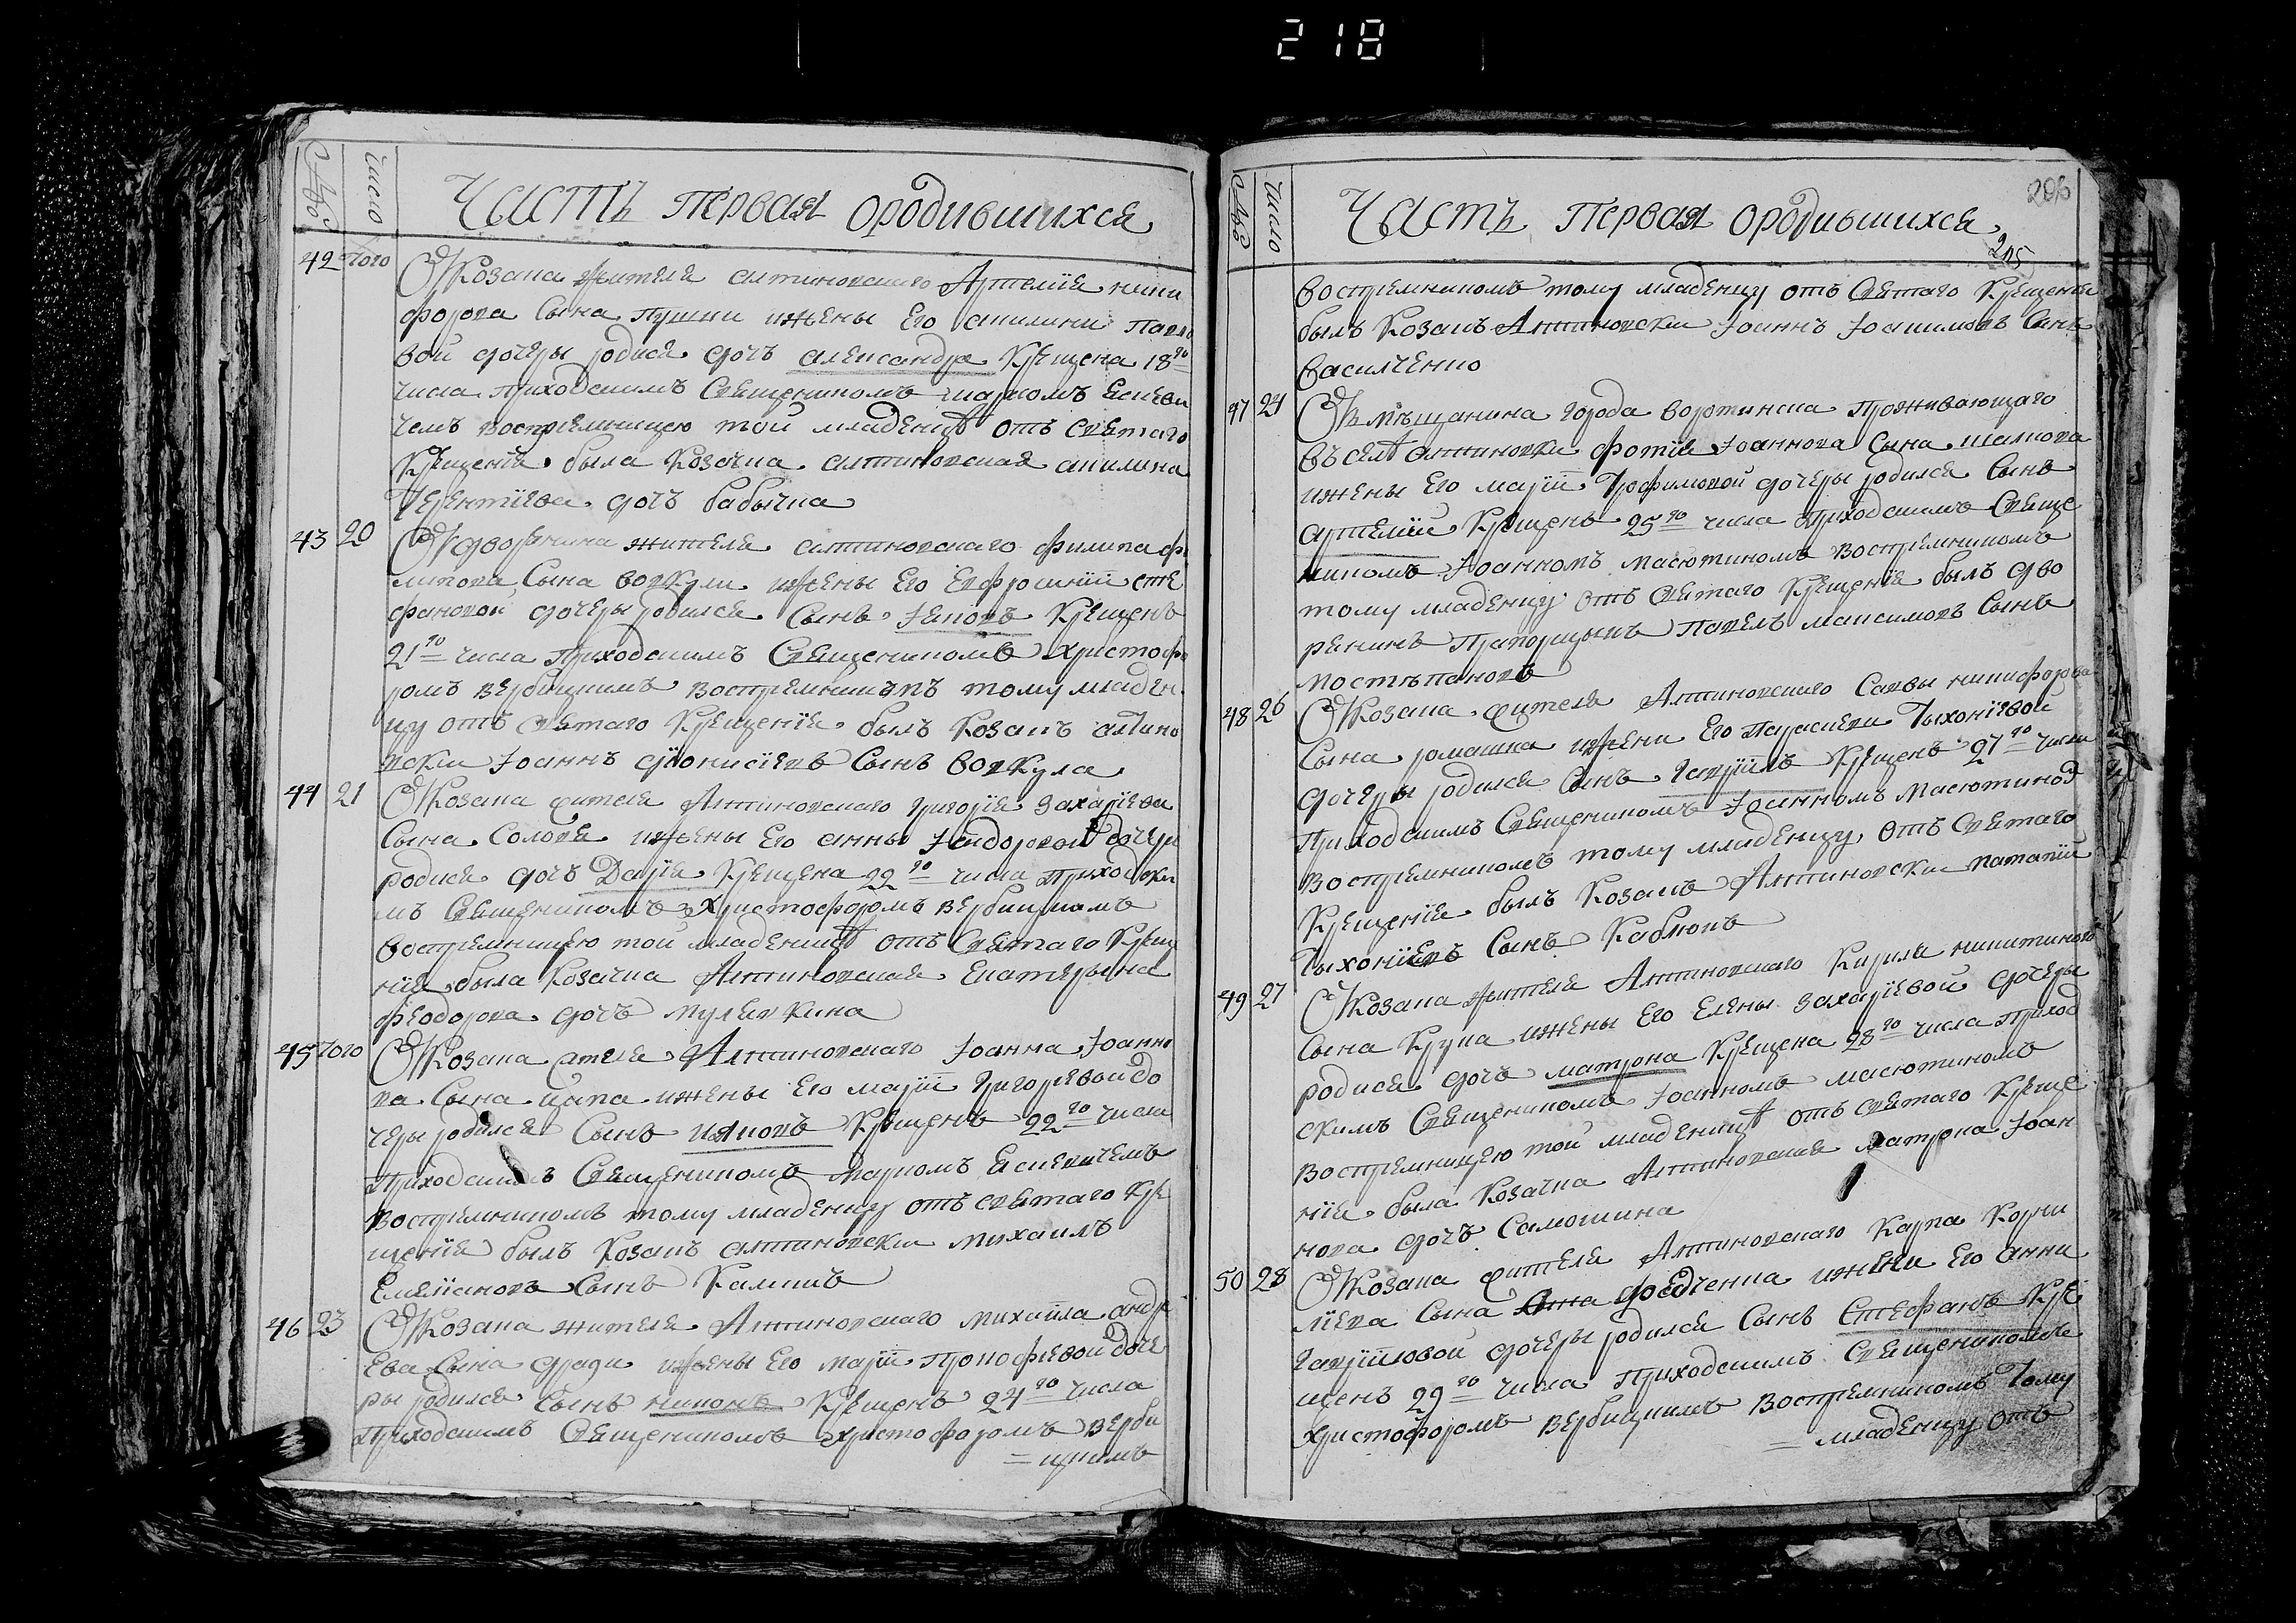 218
Число
Часть первая ородившихся
42 Того
Козака жителя алтиновского Артемия ники
форова Сына пушки ижены Его акилини Павло
вой дочеры родися дочъ александра Крещена 18го
числа приходскимъ Священикомъ маркомъ Еси
чемъ воспремницею той младеницѣ отъ светаго
Крещения была Козачка алтиновская акилина
Терентиева дочъ бабычка
43 20
дворянина жителя алтиновского филипа фи
липова Сына вовкули ижены Его Евфросинии сте
фановой дочеры родился Сынъ Іаковъ Крещенъ
21го числа приходскимъ Священикомъ Христофо
ромъ вербицкимъ воспремникомъ тому младен
цу отъ светаго Крещения былъ Козакъ алтино
вски Іоаннъ дионисиевъ Сынъ вовкула
44 21
Козака жителя Алтиновского григория захариева
Сына Соловя ижены Его анны дочеры
родися дочъ Дария Крещена 22го числа приходски
мъ Священикомъ Христофоромъ вербицкимъ
воспремницею той младеницѣ отъ Светаго Креще
ния была Козачка Алтиновская Екатерина
феодорова дочъ
45 Того
Козака жителя Алтиновского Іоанна Іоанно
ва Сына цапа ижены Его марии григоревой до
черы родился Сынъ иаковъ Крещенъ 22го числа
приходскимъ Священикомъ маркомъ
воспремникомъ тому младенцу отъ светаго Кре
щения былъ Козакъ алтиновски михаилъ
Емелиановъ Сынъ
46 23
Козака жителя Алтиновского михаила андре
Ева Сына ижены Его марии прокофиевой доче
ры родился Сынъ никонъ Крещенъ 24го числа
приходскимъ Священикомъ христофоромъ верби
= цкимъ
Число
Часть первая ородившихся
206
205
воспремникомъ тому младенцу отъ Светаго Крещения
былъ Козакъ Алтиновски Іоаннъ Іоакимовъ Синъ
василченко
47 24
мѣщанина города воротинска проживающаго
въ селѣ алтиновки фотия Іоаннова Сына
ижены Его марии Трофимовой дочеры родился Сынъ
артемий Крещенъ 25го числа приходскимъ Свяще
никомъ Іоанномъ масютиномъ воспремникомъ
тому младенцу отъ Светаго Крещения былъ дво
ренинъ Павелъ максимовъ Сынъ
костѣпановъ
48 26
Козака жителя Алтиновского Саввы никифорова
Сына ромашка ижени Его параскеви Тихониевой
дочеры родился Синъ гавриилъ Крещенъ 27го числа
приходскимъ Священикомъ Іоанномъ Масютиномъ
воспремникомъ тому младенцу отъ Светаго
Крещения былъ Козакъ Алтиновски патапий
Тихониевъ Сынъ Кабл
49 27
Козака жителя Алтиновского Кирила никитинова
Сына Крупа ижены Его Елены захариевой дочеры
родися дочъ матрона Крещена 28го числа приход
скимъ Священикомъ Іоанномъ масютиномъ
воспремницею той младеницѣ отъ светаго Креще
ния была Козачка Алтиновская матрона Іоан
нова дочъ Самошина
50 28
Козака жителя Алтиновского Карпа Корни
лиева Сына федченка ижени Его анни
гаврииловой дочеры родился Сынъ Стефанъ Кре
щенъ 29го числа приходскимъ Священикомъ
Христофоромъ вербицкимъ воспремникомъ Тому
= младенцу отъ